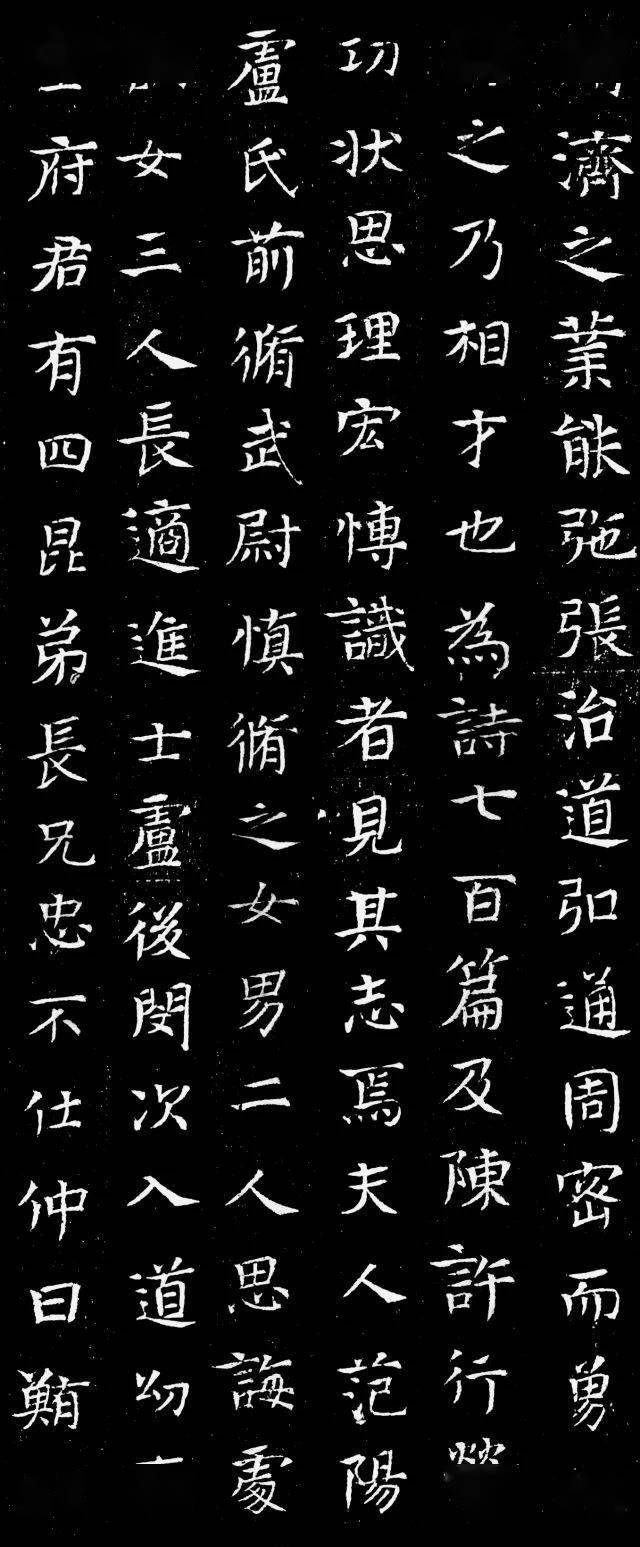 濟之業能弛張治道弘通周密而勇
之乃相才也為詩七百篇及陳許行營
功狀思理宏博識者見其志焉夫人范陽
盧氏前脩武尉慎脩之女男二人思誨處
女三人長適進士盧後閔次入道幼
府君有四昆弟長兄忠不仕仲曰